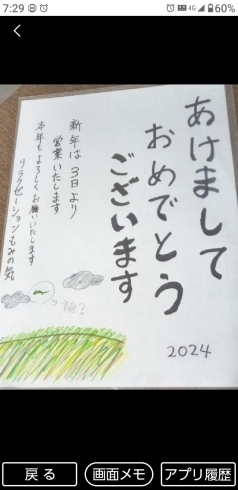 7:29
4G
60%
あけまして
おめでとう
ございます
2024
新年は 3日より
営業いたします
本年もよろしくお願いいたします
リラクゼーションもみの気
戻る
画面メモ
アプリ履歴